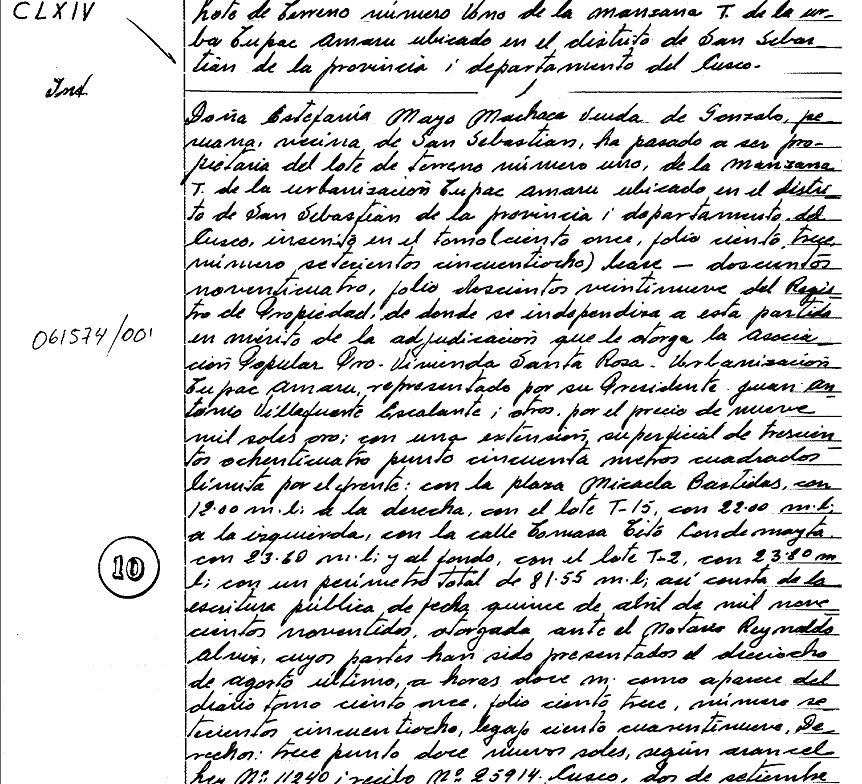 CLXIV
lote de terreno número Uno de la manzana T. de la ur-
ba Tupac Amaru ubicado en el distrito de San Sebas-
tián de la provincia i departamento del Cusco.-
Ind
Doña Estefanía Mayo Machaca Viuda de Gonzalo, pe-
ruana, vecina de San Sebastian, ha pasado a ser pro-
pietaria del lote de terreno número uno, de la manzana
T. de la urbanización Tupac Amaru ubicado en el distri-
to de San Sebastián de la provincia i departamento del
Cusco, inscrito en el tomo(ciento once, folio ciento trece,
número setecientos cincuentiocho) lease - doscientos
noventicuatro, folio doscientos veintinueve del Regis-
tro de Propiedad, de donde se independiza a esta partida
en mérito de la adjudicación que le otorga la Asocia-
ción Popular Pro-Vivienda Santa Rosa - Urbanización
Tupac Amaru, representado por su Presidente Juan An-
tonio Villafuerte Escalante i otros, por el precio de nueve
mil soles oro; con una extensión superficial de trescien-
tos ochenticuatro punto cincuenta metros cuadrados
limita por el frente: con la plaza Micaela Bastidas, con
12.00 m.l; a la derecha, con el lote T-15, con 22.00 m.l;
a la izquierda, con la calle Tomasa Tito Condemayta
con 23.60 m.l; y al fondo, con el lote T-2, con 23.80 m
l; con un perímetro total de 81.55 m.l; así consta de la
escritura pública de fecha quince de abril de mil nove-
cientos noventidos, otorgada ante el Notario Reynaldo
Alviz, cuyos partes han sido presentados el dieciocho
de agosto último, a horas doce m. como aparece del
diario tomo ciento once, folio ciento trece, número se-
tecientos cincuentiocho, legajo ciento cuarentinueve, De-
rechos: trece punto doce nuevos soles, según arancel
ley Nº 11240 i recibo Nº 25914. Cusco, dos de setiembre
061574/001
10